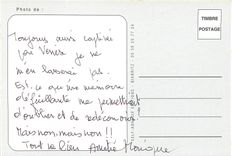 Photo de :
TIMBRE
POSTAGE
Toujours aussi captivée
par Venise je ne
m'en lasserai pas.
Est-ce que une mémoire
défaillante me permettrait
d'oublier et de redécouvrir
Mais non, mais non !!!
Tout le lien Amitié Monique